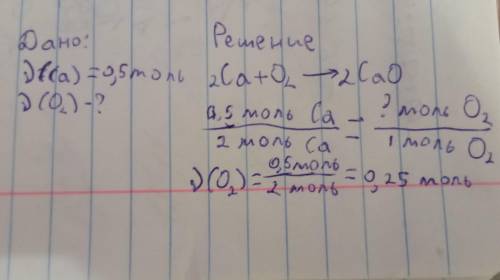 Дано:
ν(Ca) = 0,5 моль
ν(O₂) - ?
Решение
2Ca + O₂ → 2CaO
0,5 моль Ca / 2 моль Ca = ? моль O₂ / 1 моль O₂
ν(O₂) = 0,5 моль / 2 моль = 0,25 моль